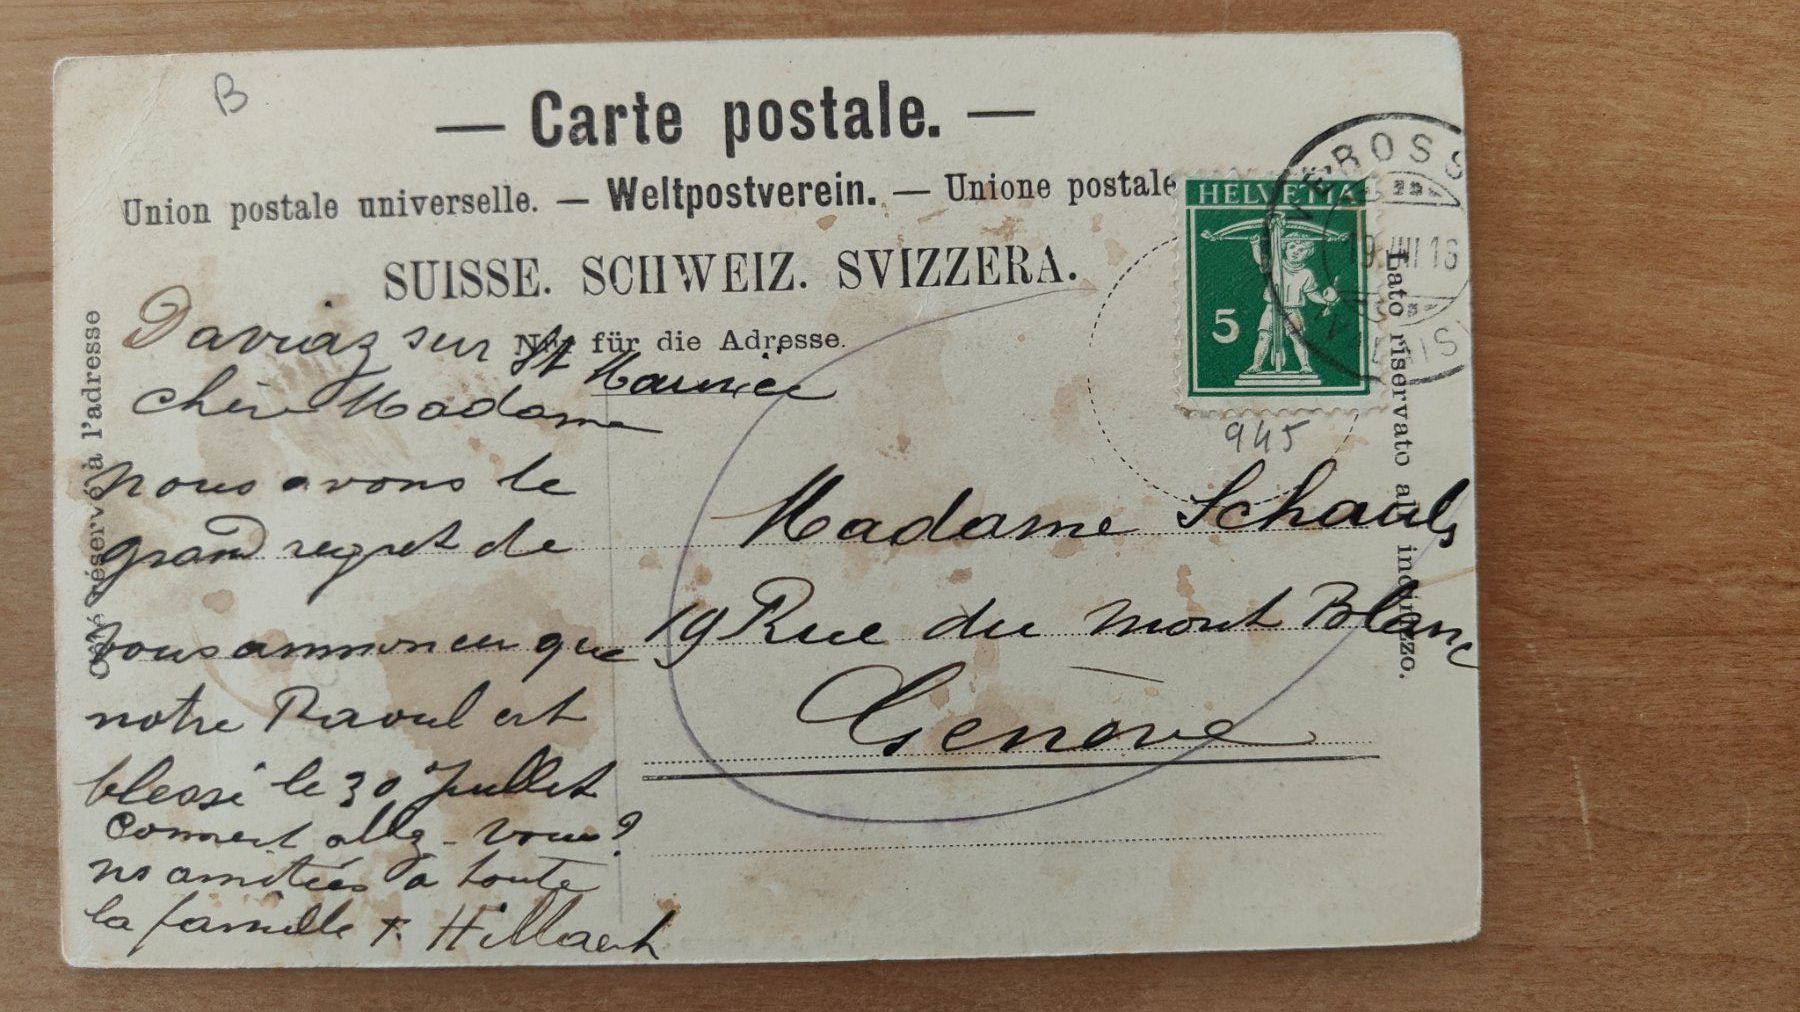 B
— Carte postale. —
Union postale universelle. — Weltpostverein. — Unione postale
SUISSE. SCHWEIZ. SVIZZERA.
Nur für die Adresse.
Côté réservé à l'adresse
Lato riservato all' indirizzo.
HELVETIA
5
VÉROSS
945
Daviaz sur St Maurice
chère Madame
nous avons le
grand regret de
vous annoncer que
notre Raoul est
blessé le 30 Juillet
Comment allez-vous?
nos amitiés a toute
la famille
Madame
19 Rue du mont Blanc
Genève